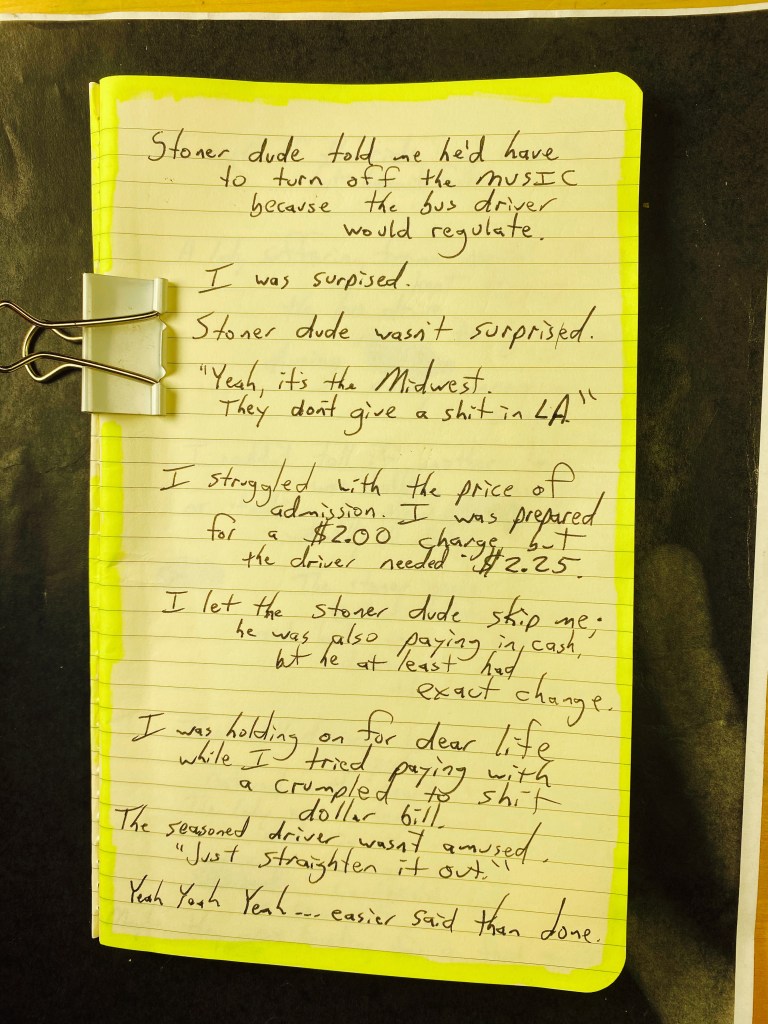 Stoner dude told me he'd have
to turn off the MUSIC
because the bus driver
would regulate.
I was surpised.
Stoner dude wasn't surprised.
"Yeah, it's the Midwest.
They don't give a shit in LA."
I struggled with the price of
admission. I was prepared
for a $2.00 charge, but
the driver needed $2.25.
I let the stoner dude skip me;
he was also paying in cash,
but he at least had
exact change.
I was holding on for dear life
while I tried paying with
a crumpled to shit
dollar bill.
The seasoned driver wasn't amused.
"Just straighten it out."
Yeah Yeah Yeah... easier said than done.